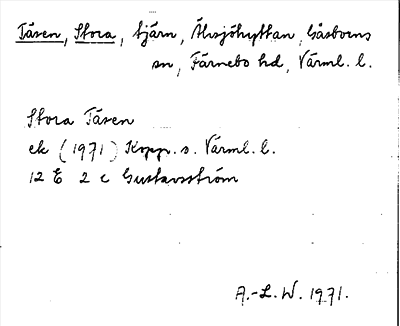 Tåsen, Stora, tjärn, Älvsjöhyttan, Gåsborns
sn, Färnebo hd, Värml. l.
Stora Tåsen
ek (1971) Kopp. o. Värml. l.
12 E 2 c Gustavsström
A.-L. W. 1971.